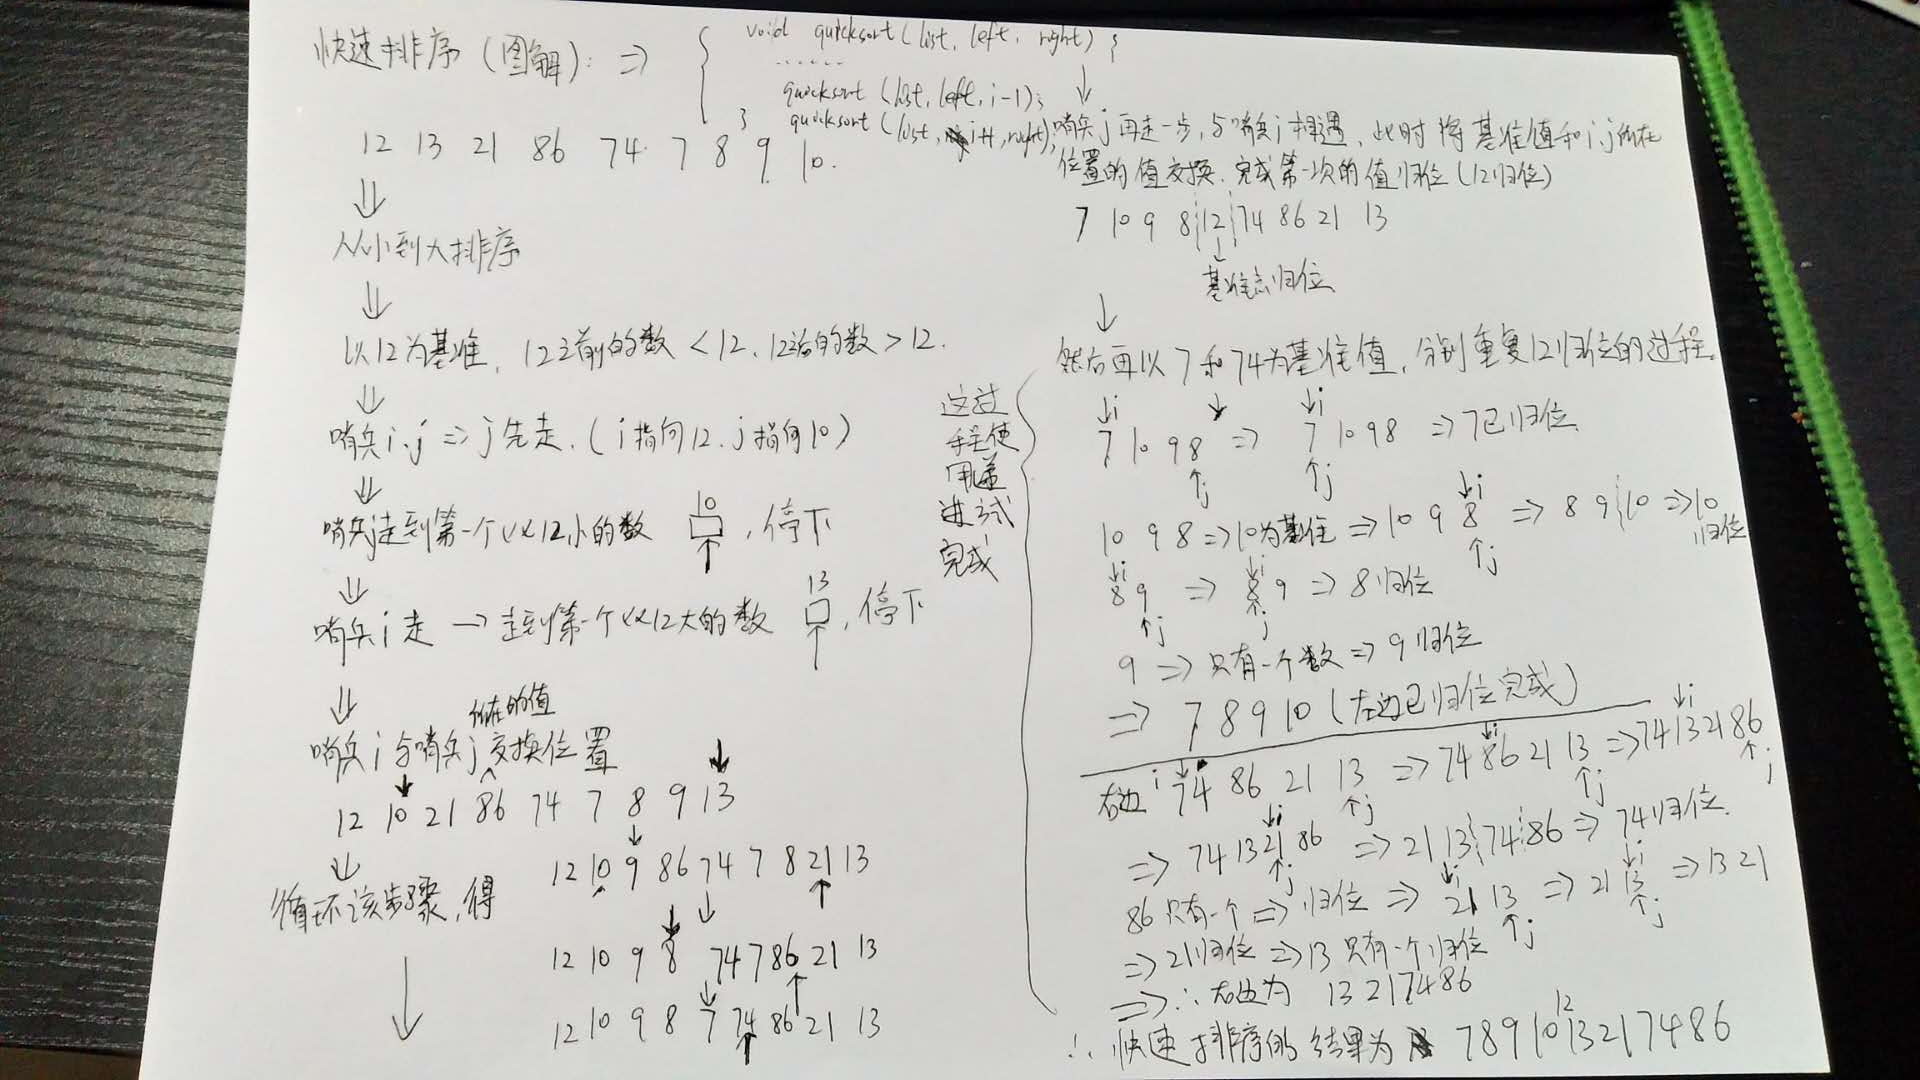 快速排序(图解): ⇒ { void quicksort(list, left, right) {
......
quicksort (list, left, i-1);
quicksort (list, i+1, right);
}
12 13 21 86 74 7 8 9 10.
⇓
从小到大排序
⇓
以12为基准, 12之前的数 < 12, 12之后的数 > 12.
⇓
哨兵 i、j ⇒ j 先走. ( i 指向12, j 指向10 )
⇓
哨兵j走到第一个比12小的数 10 ↑, 停下
⇓
哨兵 i 走 → 走到第一个比12大的数 13 ↑, 停下
⇓
哨兵 i 与哨兵 j 所在的值交换位置
12 10 21 86 74 7 8 9 13
↓
循环该步骤, 得
12 10 9 86 74 7 8 21 13
12 10 9 8 74 7 86 21 13
12 10 9 8 7 74 86 21 13
↓
哨兵 j 再走一步, 与哨兵 i 相遇, 此时将基准值和 i.j 所在
位置的值交换, 完成第一次的值归位 (12归位)
7 10 9 8 12 74 86 21 13
↓
基准点归位
↓
然后再以 7 和 74 为基准值, 分别重复12归位的过程.
这过
程使
用递
进式
完成
↓i
7 10 9 8 ⇒ 7 10 9 8 ⇒ 7已归位
↑j ↑j
10 9 8 ⇒ 10为基准 ⇒ 10 9 8 ⇒ 8 9 10 ⇒ 10归位
8 9 ⇒ 8 9 ⇒ 8归位
9 ⇒ 只有一个数 ⇒ 9归位
⇒ 7 8 9 10 (左边已归位完成)
右边 i 74 86 21 13 ⇒ 74 86 21 13 ⇒ 74 13 21 86
⇒ 74 13 21 86 ⇒ 21 13 74 86 ⇒ 74归位.
86 只有一个 ⇒ 归位 ⇒ 21 13 ⇒ 21 13 ⇒ 13 21
⇒ 21归位 ⇒ 13 只有一个归位
⇒ ∴ 右边为 13 21 74 86
∴ 快速排序的结果为 7 8 9 10 12 13 21 74 86